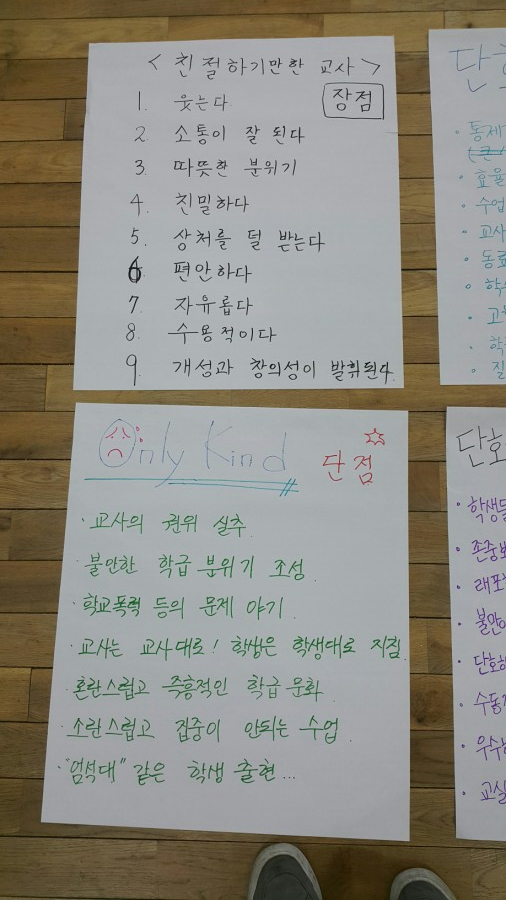 < 친절하기만한 교사 >
장점
1. 웃는다
2. 소통이 잘 된다
3. 따뜻한 분위기
4. 친밀하다
5. 상처를 덜 받는다
6. 편안하다
7. 자유롭다
8. 수용적이다
9. 개성과 창의성이 발휘된다.
Only Kind 단점
· 교사의 권위 실추.
· 불안한 학급 분위기 조성.
· 학교폭력 등의 문제 야기.
· 교사는 교사대로! 학생은 학생대로 지침.
· 혼란스럽고 즉흥적인 학급 문화
· 소란스럽고 집중이 안되는 수업.
· "엄석대" 같은 학생 출현...
단호
· 통제
· 효율
· 수업
· 교사
· 동료
· 학
· 질
단호
· 학생들
· 존중
· 래포
· 불만
· 단호
· 수동
· 우수
· 교실